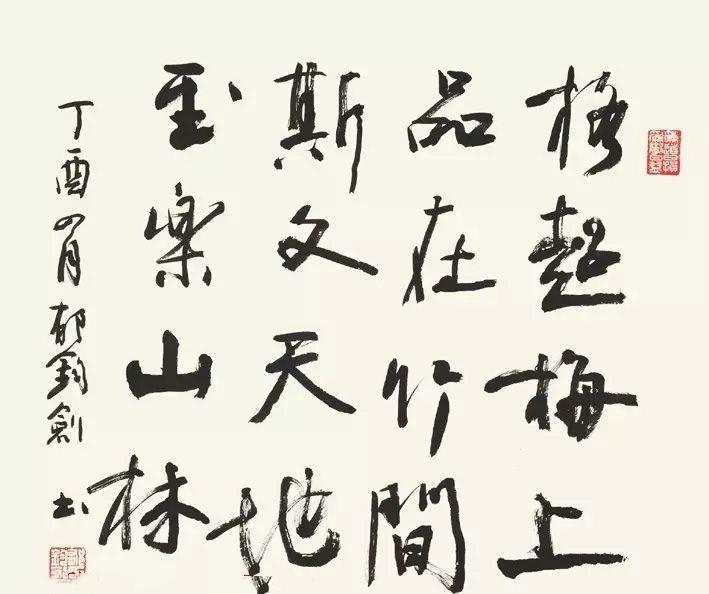 格超梅上
品在竹間
斯文天地
至樂山林
丁酉四月郁鈞劍書